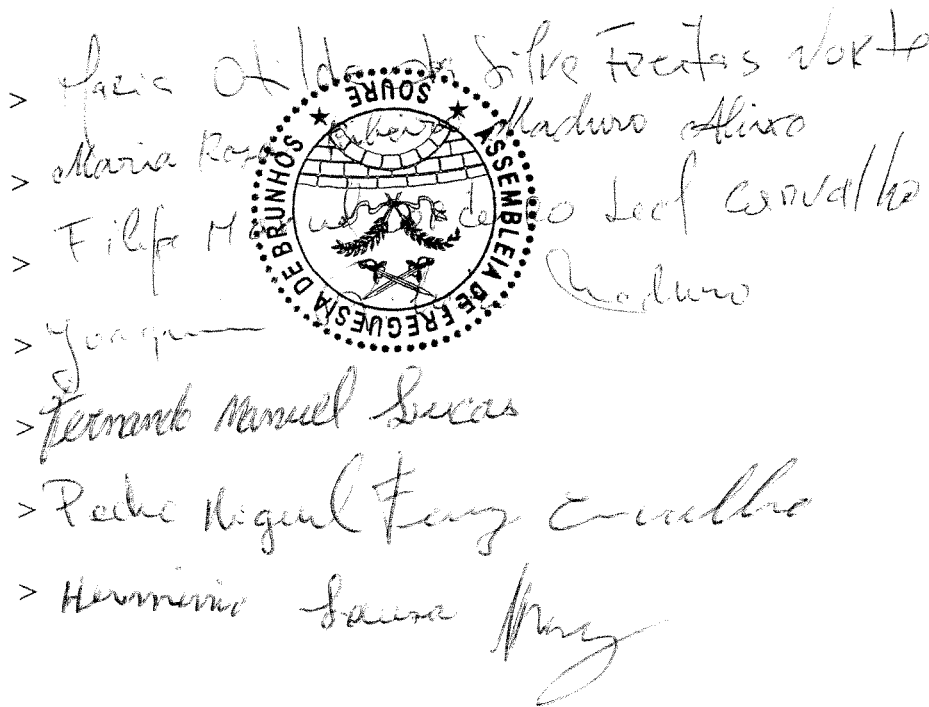 > Maria Otilda da Silva Freitas Norte
> Maria Rosa Ribeiro Maduro Aleixo
> Filipe Manuel Leal Carvalho
> Joaquim Maduro
> Fernando Manuel Lucas
> Pedro Miguel Ferraz Carvalho
> Hermínio Sousa
ASSEMBLEIA DE FREGUESIA DE BRUNHÓS
★ SOURE ★